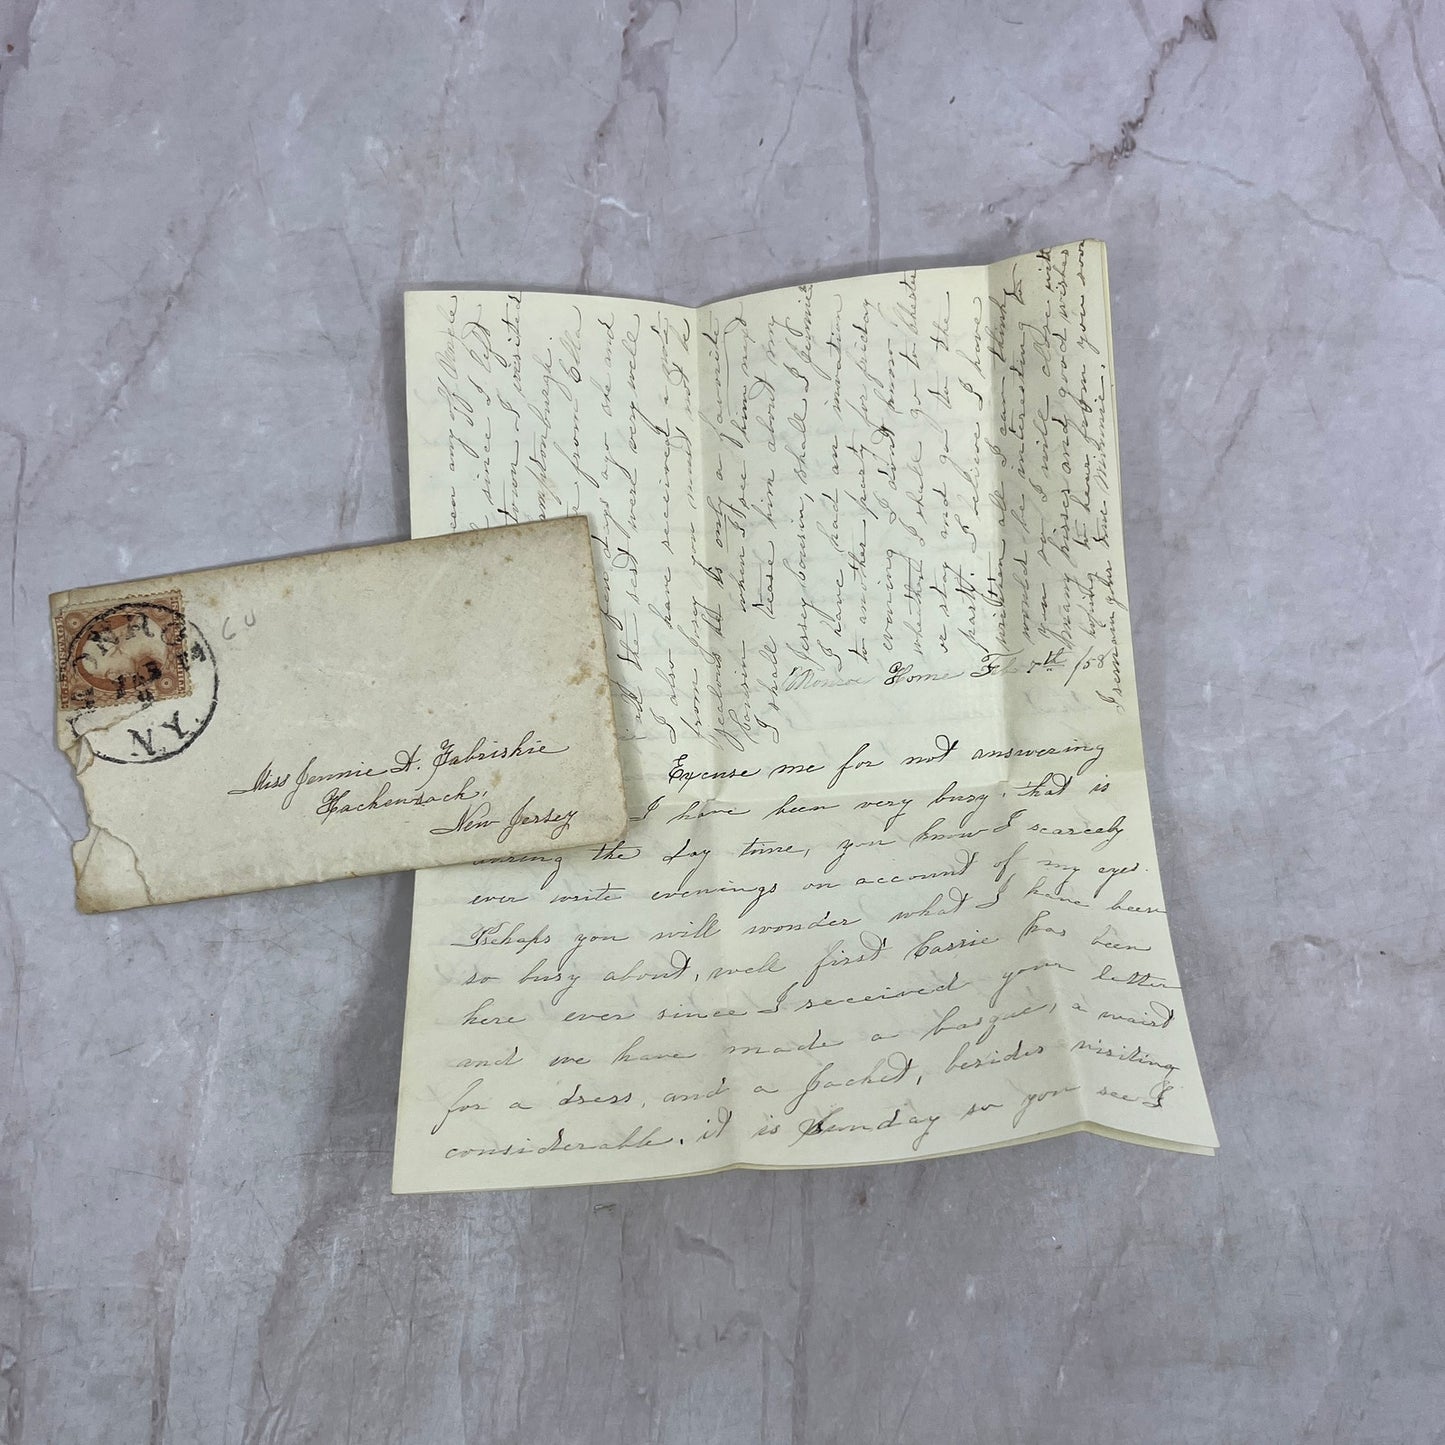 MONROE
FEB
N.Y.
60
Miss Jennie A. Zabriskie
Hackensack,
New Jersey
Monroe Home Feb 7th /58
Excuse me for not answering
I have been very busy, that is
during the day time, you know I scarcely
ever write evenings on account of my eyes.
Perhaps you will wonder what I have been
so busy about, well first Cassie has been
here ever since I received your letter
and we have made a basque, a waist
for a dress, and a Jacket, besides visiting
considerable, it is Sunday so you see I
seen any of
since I left
town I visited
from Ella
a few days ago she and
all the rest were very well
I also have received a note
from Josey you must not be
jealous he is only a favorite
cousin when I see him next
I shall tease him about my
Jersey cousin, shall I Jennie
I have had an invitation
to another party for friday
evening I don't know
whether I shall go to Chester
or stay and go to the
party. I believe I have
written all I can think
would be interesting to
you so I will close with
many kisses and good wishes
hoping to hear from you soon
I remain your true Minnie.